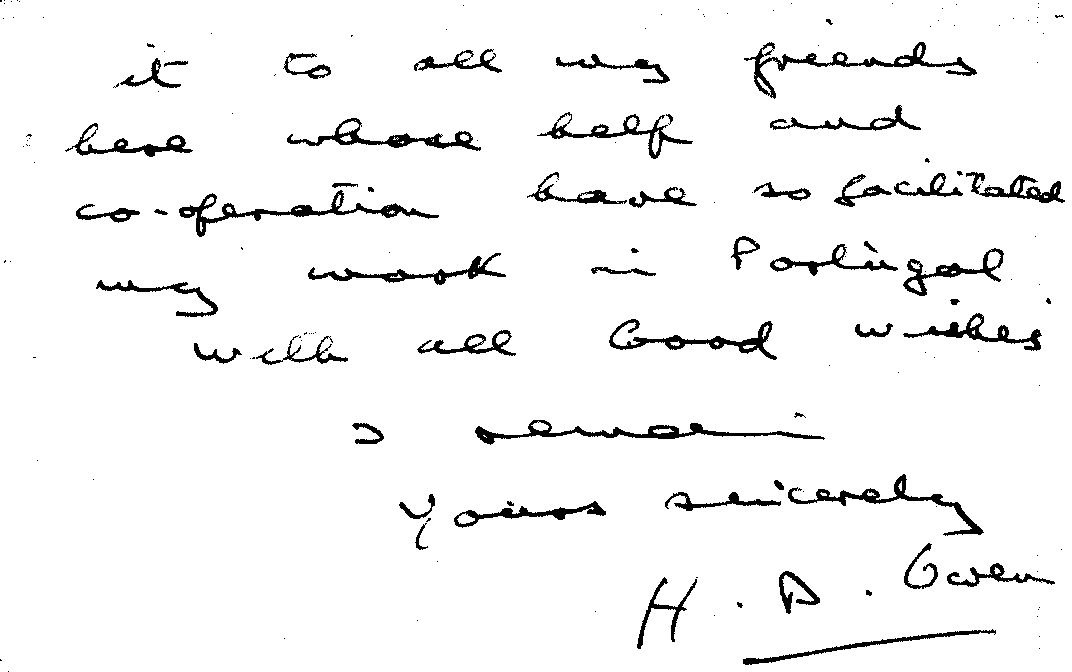 it to all my friends
here whose help and
co-operation have so facilitated
my work in Portugal
with all Good wishes
I remain
Yours sincerely
H. D. Owen